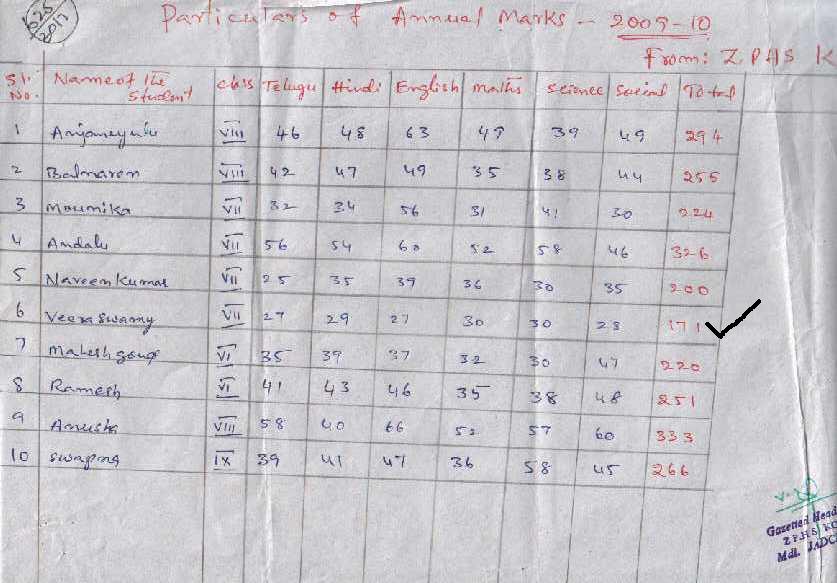 625
2017
Particulars of Annual Marks - 2009-10
From: ZPHS K
Sl. No. Name of the Student class Telugu Hindi English maths science Social Total
1 Anjaneyulu VIII 46 48 63 49 39 49 294
2 Balnaren VIII 42 47 49 35 38 44 255
3 Mounika VII 32 34 56 31 41 30 224
4 Andalu VII 56 54 60 52 58 46 326
5 Naveen Kumar VII 25 35 39 36 30 35 200
6 Veera Swamy VII 27 29 27 30 30 28 171
7 Mahesh goud VI 35 39 37 32 30 47 220
8 Ramesh VI 41 43 46 35 38 48 251
9 Anusha VIII 58 40 66 52 57 60 333
10 Swapna IX 39 41 47 36 58 45 266
Gazetted Head
Z.P.H.S KO
Mdl. JADC